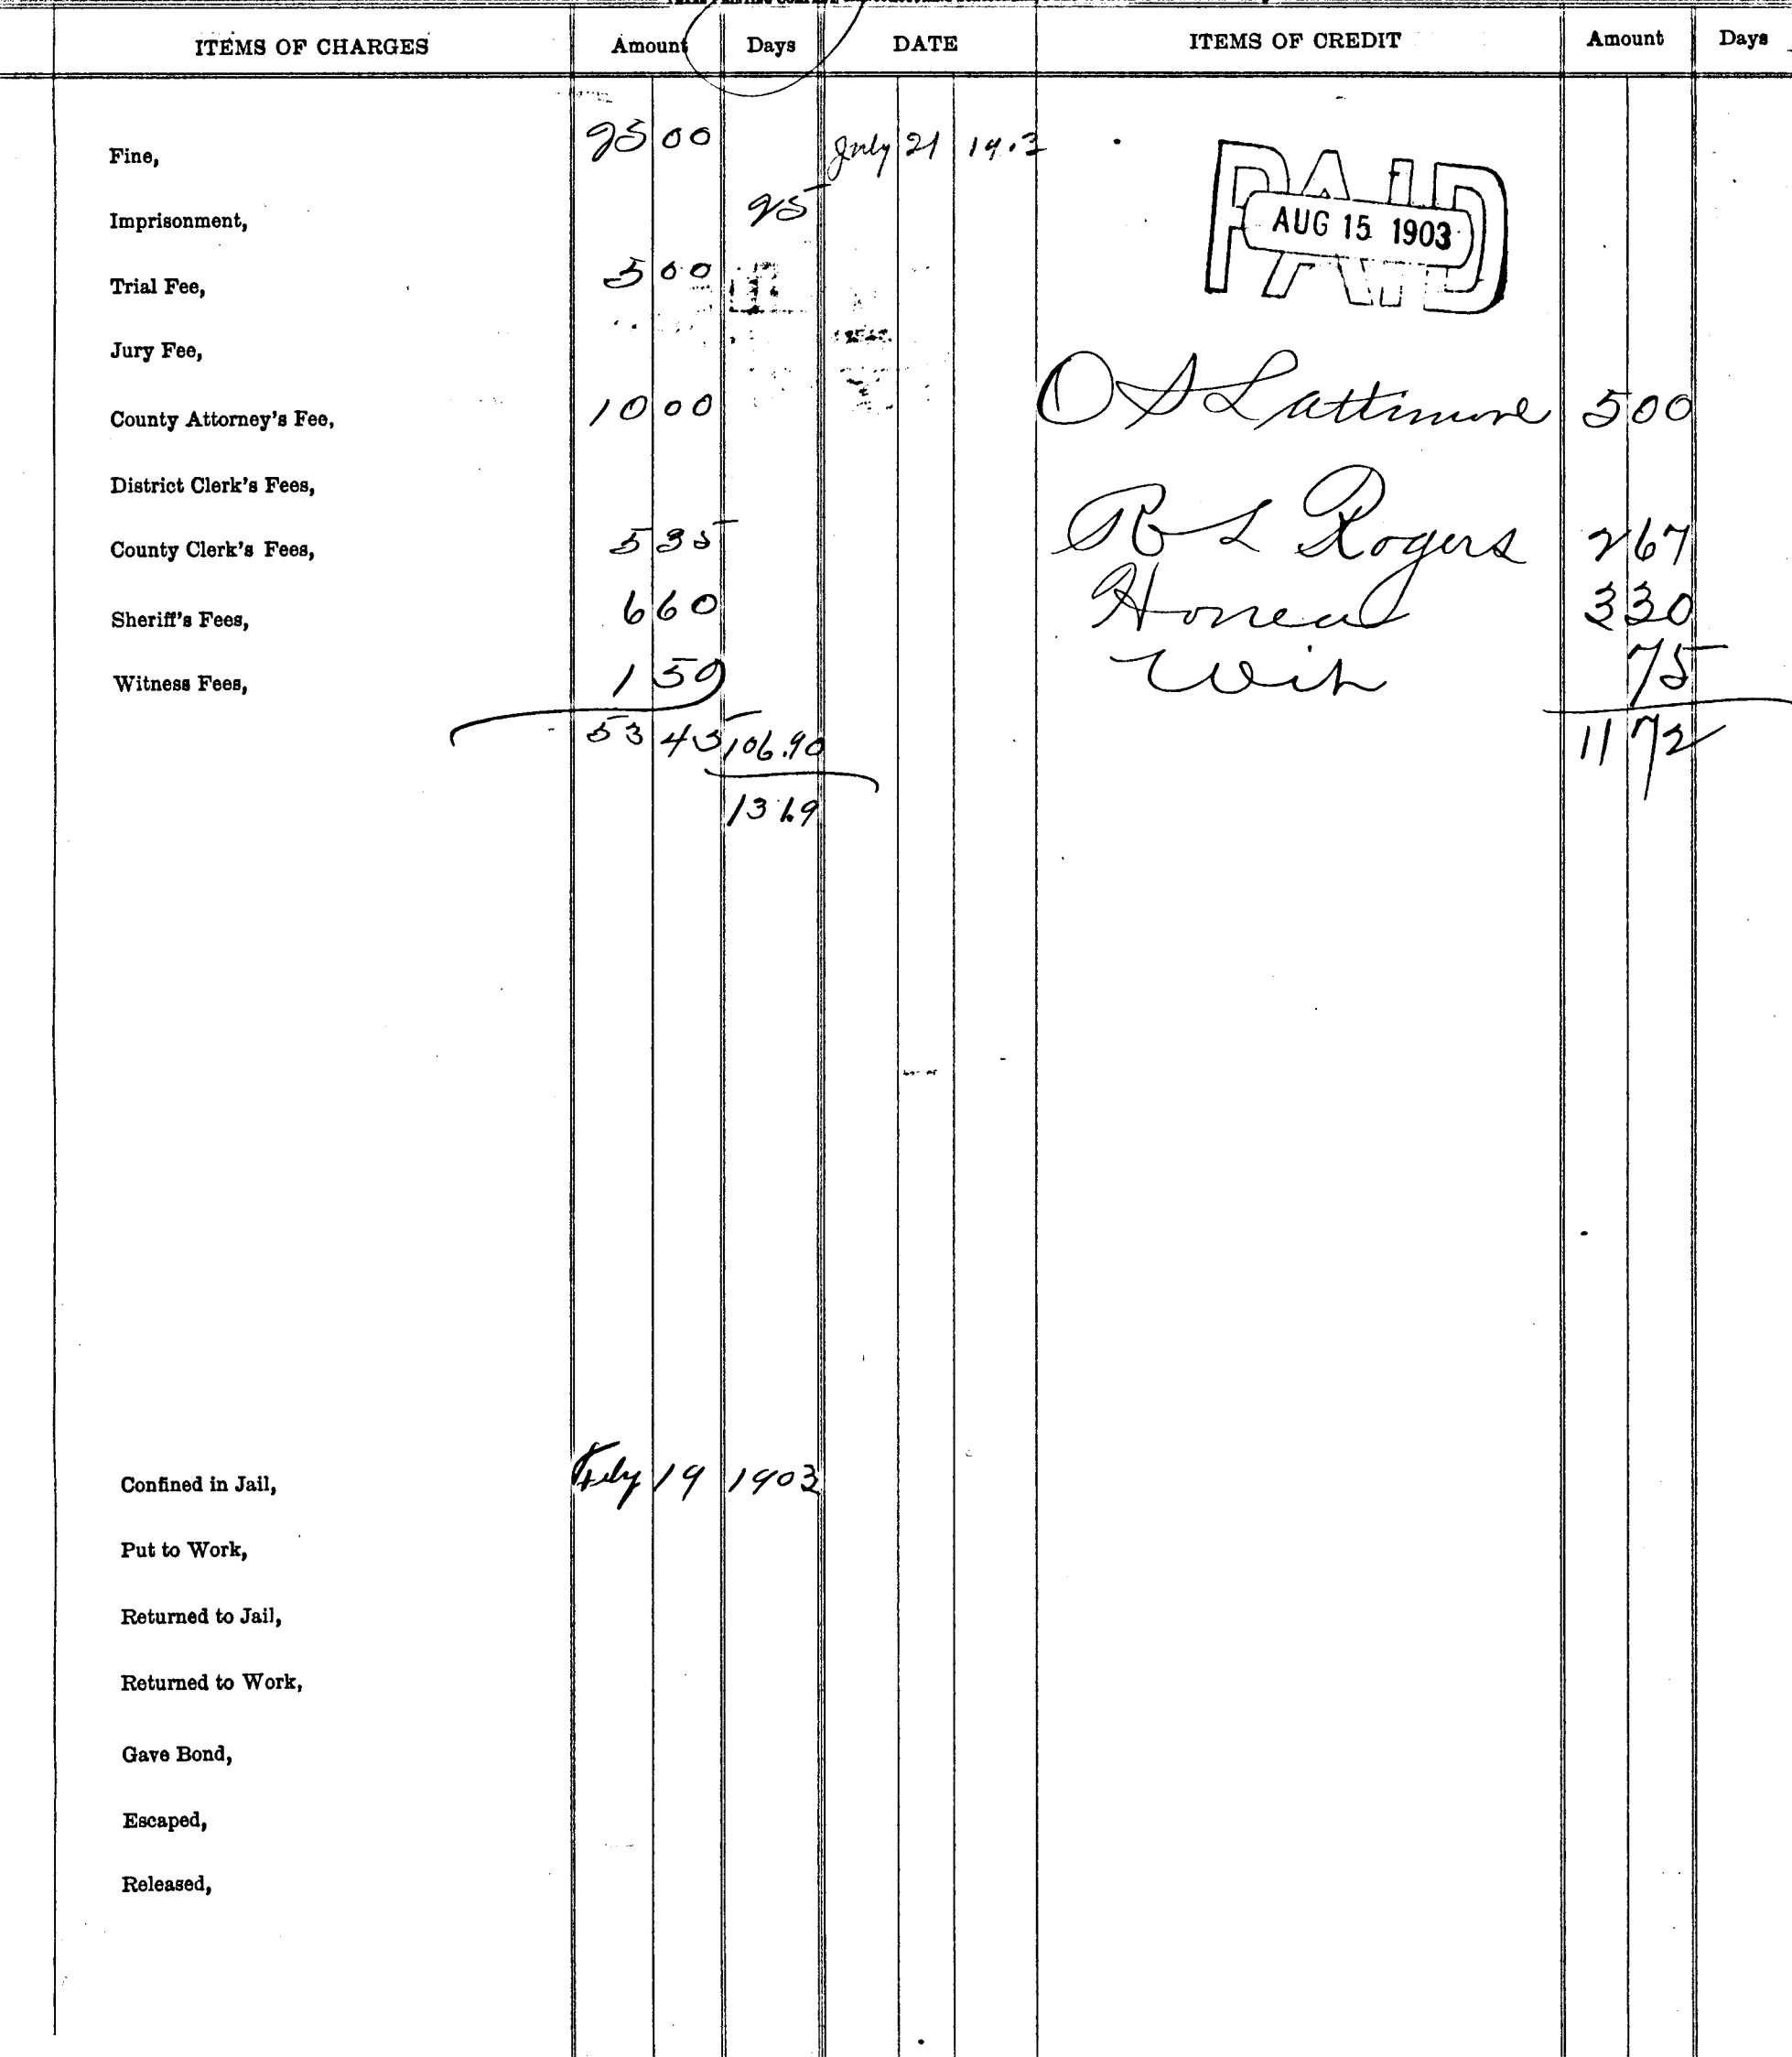 ITEMS OF CHARGES Amount Days DATE ITEMS OF CREDIT Amount Days
Fine, 25 00 July 21 1903
PAID
AUG 15 1903
Imprisonment, 25
Trial Fee, 5 00
Jury Fee,
County Attorney's Fee, 10 00 O S Lattimore 5 00
District Clerk's Fees,
County Clerk's Fees, 5 35 R L Rogers 2 67
Sheriff's Fees, 6 60 Honea 3 30
Witness Fees, 1 50 Wit 75
53 45 106.90 11 72
131.9
Confined in Jail, 19 1903
Put to Work,
Returned to Jail,
Returned to Work,
Gave Bond,
Escaped,
Released,